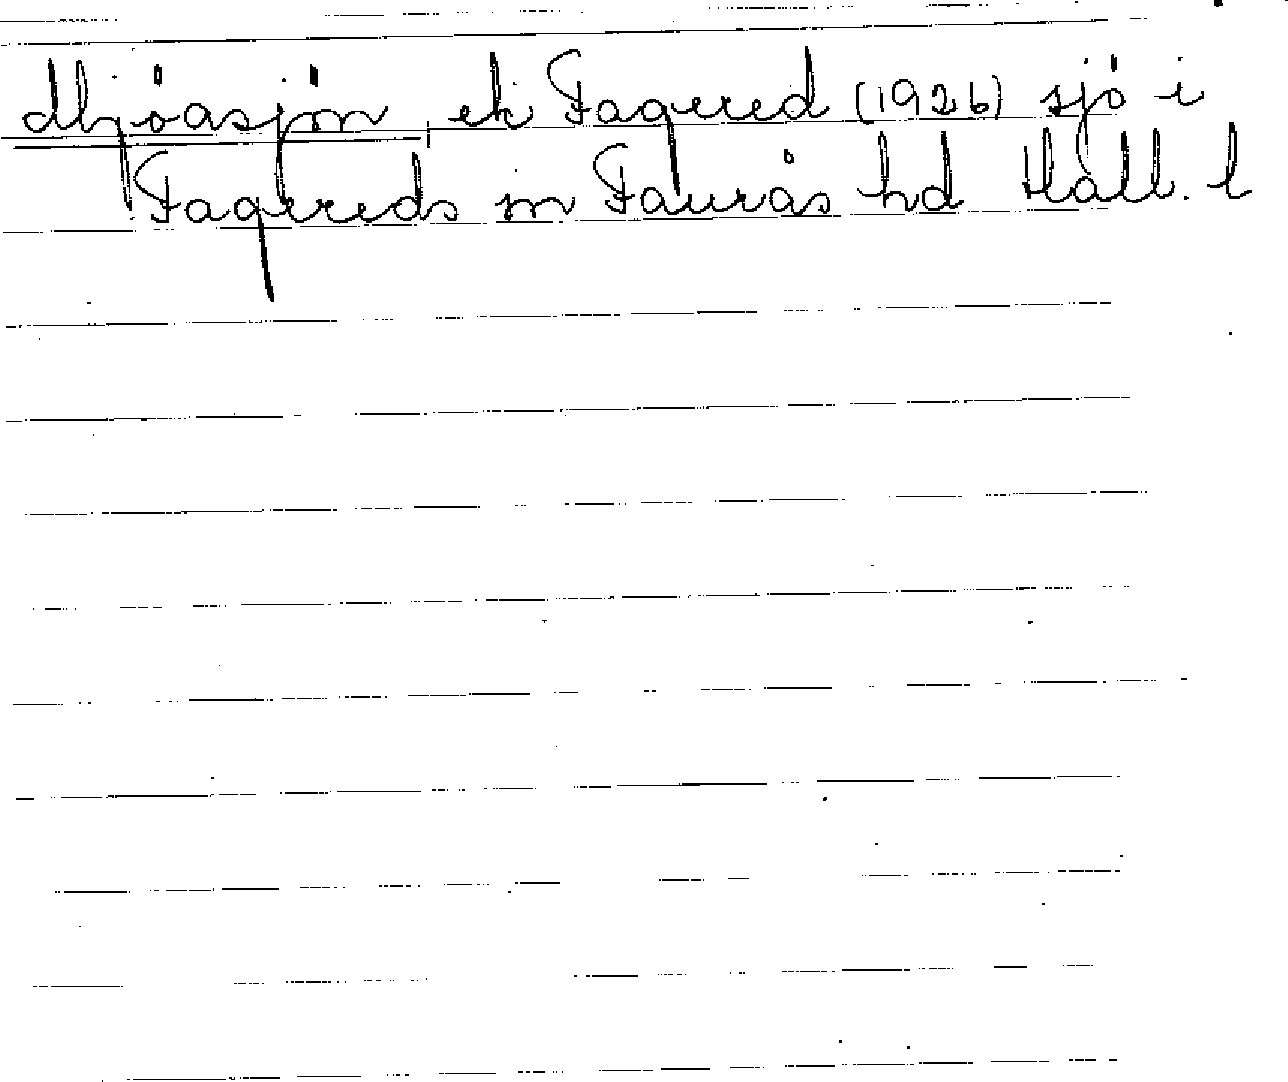 Mjöasjön ek Fagered (1926) sjö i
Fagereds sn Faurås hd Hall. l